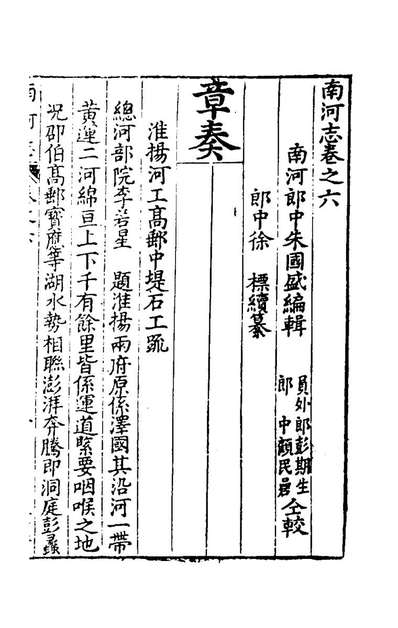 南河志卷之六
南河郎中朱國盛編輯
郎中徐　標續纂
員外郎彭期生
郎中顏民
仝較
章奏
淮揚河工高郵中堤石工疏
總河部院李若星　題淮揚兩府原係澤國其沿河一帶
黃運二河綿亘上下千有餘里皆係運道緊要咽喉之地
況邵伯高郵寶應等湖水勢相聯澎湃奔騰即洞庭彭蠡
南河志